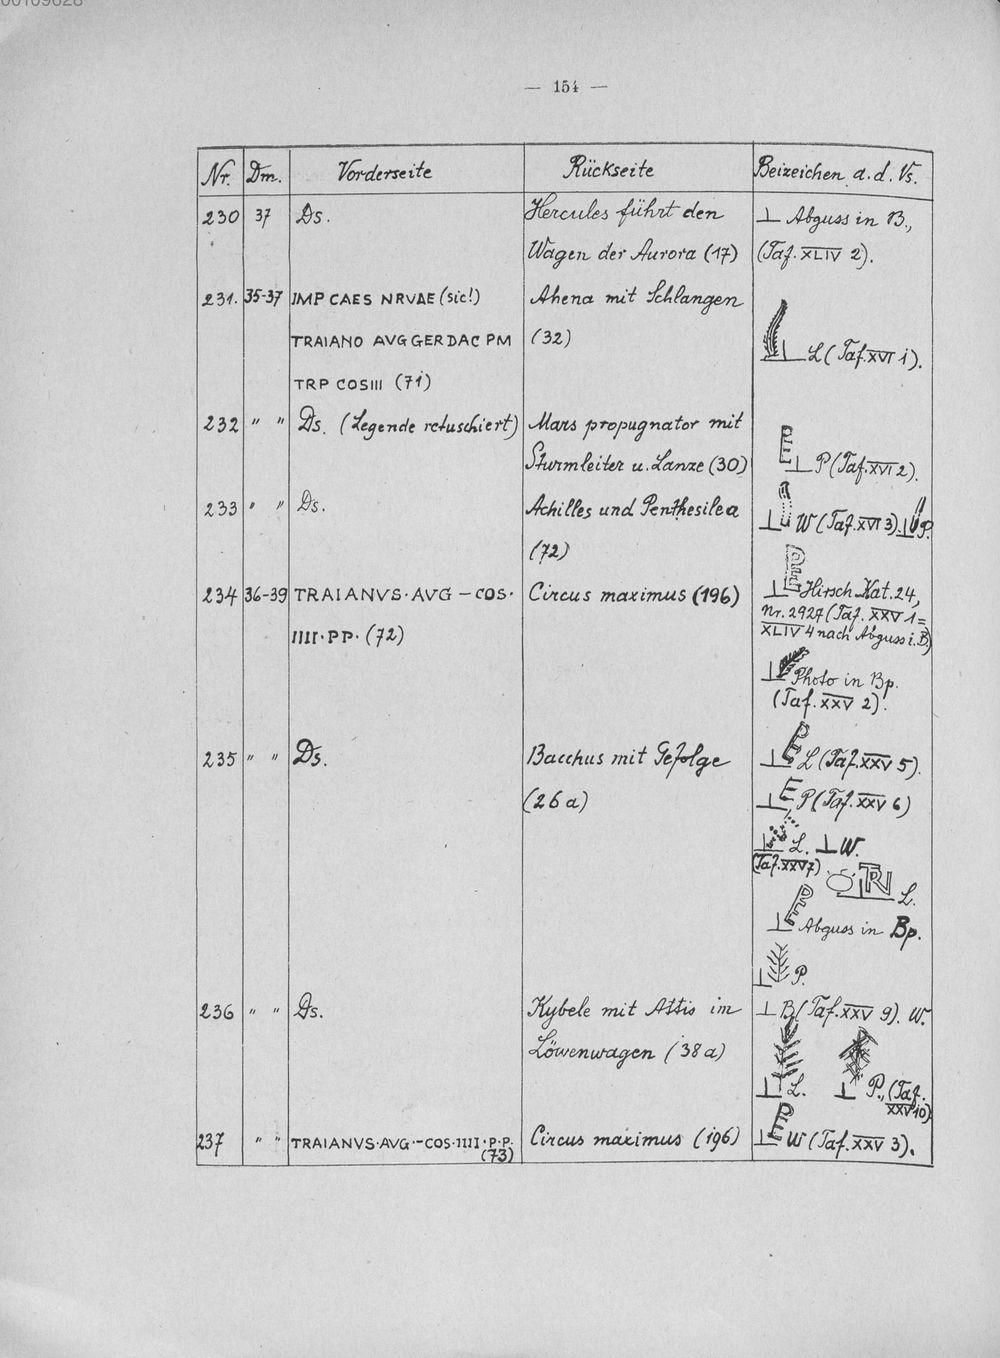 00109628
— 154 —
Nr. Dm. Vorderseite Rückseite Beizeichen a. d. Vs.
230 37 Ds. Hercules führt den Wagen der Aurora (17) ⊥ Abguss in B., (Taf. XLIV 2).
231. 35-37 IMP CAES NRVAE (sic!) Ahena mit Schlangen
TRAIANO AVG GER DAC PM (32) L (Taf. XVI 1).
TRP COSIII (71)
232 " " Ds. (Legende retuschiert) Mars propugnator mit
Sturmleiter u. Lanze (30) PE ⊥ P (Taf. XVI 2).
233 " " Ds. Achilles und Penthesilea ⊥ W (Taf. XVI 3). ⊥ P.
(72)
234 36-39 TRAIANVS·AVG – COS· Circus maximus (196) ⊥ PE Hirsch Kat. 24,
IIII·PP· (72) Nr. 2927 (Taf. XXV 1 =
XLIV 4 nach Abguss i. B.)
⊥ Photo in Bp.
(Taf. XXV 2).
235 " " Ds. Bacchus mit Gefolge ⊥ PE L (Taf. XXV 5).
(26a) ⊥ PE P (Taf. XXV 6)
⊥ L. ⊥ W.
(Taf. XXV 7)
L.
⊥ PE Abguss in Bp.
⊥ P.
236 " " Ds. Kybele mit Attis im ⊥ B (Taf. XXV 9). W.
Löwenwagen (38a)
⊥ L. ⊥ P., (Taf.
XXV 10)
237 " " TRAIANVS·AVG·–COS·IIII·P·P. Circus maximus (196) ⊥ PE W (Taf. XXV 3).
(73)